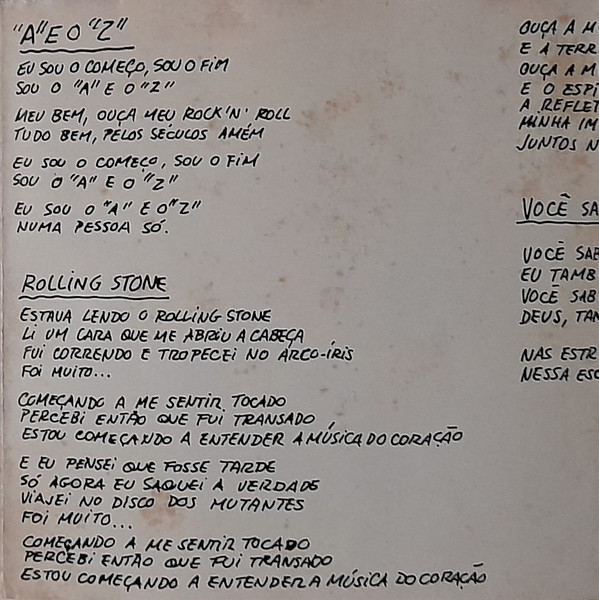 "A" E O "Z"
EU SOU O COMEÇO, SOU O FIM
SOU O "A" E O "Z"
MEU BEM, OUÇA MEU ROCK'N' ROLL
TUDO BEM, PELOS SÉCULOS AMÉM
EU SOU O COMEÇO, SOU O FIM
SOU O "A" E O "Z"
EU SOU O "A" E O "Z"
NUMA PESSOA SÓ.
ROLLING STONE
ESTAVA LENDO O ROLLING STONE
LI UM CARA QUE ME ABRIU A CABEÇA
FUI CORRENDO E TROPECEI NO ARCO-ÍRIS
FOI MUITO...
COMEÇANDO A ME SENTIR TOCADO
PERCEBI ENTÃO QUE FUI TRANSADO
ESTOU COMEÇANDO A ENTENDER A MÚSICA DO CORAÇÃO
E EU PENSEI QUE FOSSE TARDE
SÓ AGORA EU SAQUEI A VERDADE
VIAJEI NO DISCO DOS MUTANTES
FOI MUITO...
COMEÇANDO A ME SENTIR TOCADO
PERCEBI ENTÃO QUE FUI TRANSADO
ESTOU COMEÇANDO A ENTENDER A MÚSICA DO CORAÇÃO
OUÇA A M
E A TERR
OUÇA A M
E O ESPÍ
A REFLET
MINHA IM
JUNTOS N
VOCÊ SA
VOCÊ SAB
EU TAMB
VOCÊ SAB
DEUS, TAM
NAS ESTR
NESSA ESC